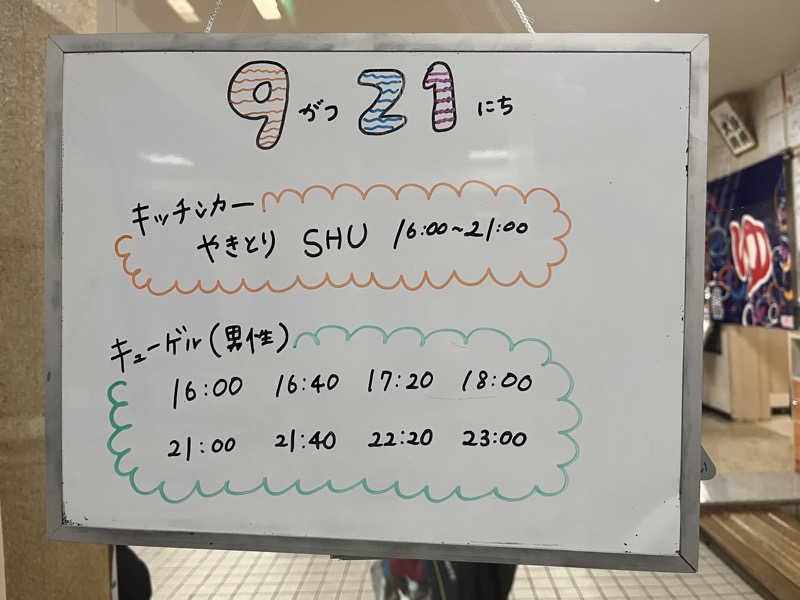 9がつ21にち
キッチンカー
やきとり SHU 16:00~21:00
キューゲル(男性)
16:00 16:40 17:20 18:00
21:00 21:40 22:20 23:00
ゆ